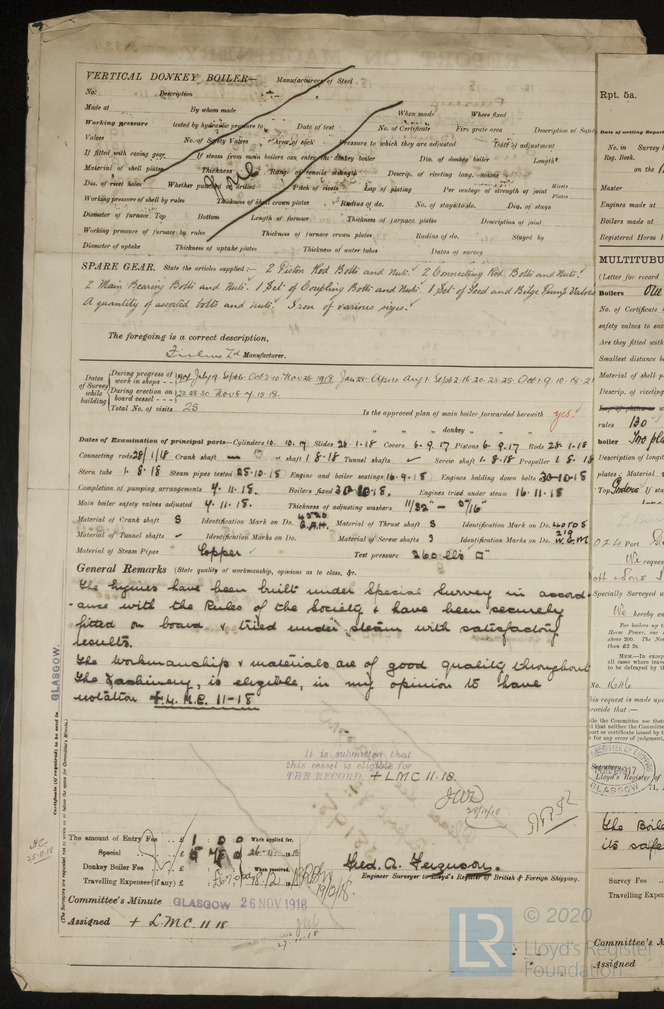 VERTICAL DONKEY BOILER— Manufacturers of Steel
No. Description
Made at By whom made When made Where fixed
Working pressure tested by hydraulic pressure to Date of test No. of Certificate Fire grate area Description of Safety
Valves No. of Safety Valves Area of each Pressure to which they are adjusted Date of adjustment
If fitted with easing gear If steam from main boilers can enter the donkey boiler Dia. of donkey boiler Length
Material of shell plates Thickness Range of tensile strength Descrip. of riveting long. seams
Dia. of rivet holes Whether punched or drilled Pitch of rivets Lap of plating Per centage of strength of joint Rivets Plates
Working pressure of shell by rules Thickness of shell crown plates Radius of do. No. of stays to do. Dia. of stays
Diameter of furnace Top Bottom Length of furnace Thickness of furnace plates Description of joint
Working pressure of furnace by rules Thickness of furnace crown plates Radius of do. Stayed by
Diameter of uptake Thickness of uptake plates Thickness of water tubes Dates of survey
SPARE GEAR. State the articles supplied:— 2 Piston Rod Bolts and Nuts. 2 Connecting Rod Bolts and Nuts.
2 Main Bearing Bolts and Nuts. 1 Set of Coupling Bolts and Nuts. 1 Set of Feed and Bilge Pump Valves
A quantity of assorted bolts and nuts. Iron of various sizes.
The foregoing is a correct description,
Manufacturer.
Dates of Survey while building
During progress of work in shops - - 1917 July 19. Sept 6. Oct 2. 10. Nov 26. 1918 Jan 28. Apr 25. Aug 1. Sept 2. 16. 20. 23. 25. Oct 1. 9. 10. 18. 21
During erection on board vessel - - - 23. 28. 30. Nov 5. 7. 13. 18.
Total No. of visits 25 Is the approved plan of main boiler forwarded herewith yes
" " " donkey " " "
Dates of Examination of principal parts—Cylinders 10. 10. 17. Slides 28. 1. 18 Covers 6. 9. 17 Pistons 6. 9. 17. Rods 28. 1. 18
Connecting rods 28/1/18 Crank shaft — Thrust shaft 1. 8. 18 Tunnel shafts Screw shaft 1. 8. 18 Propeller 1. 8. 18
Stern tube 1. 8. 18 Steam pipes tested 25. 10. 18 Engine and boiler seatings 16. 9. 18 Engines holding down bolts 30. 10. 18
Completion of pumping arrangements 4. 11. 18. Boilers fixed 30. 10. 18. Engines tried under steam 16. 11. 18
Main boiler safety valves adjusted 4. 11. 18. Thickness of adjusting washers
Material of Crank shaft S Identification Mark on Do. 4520 G.A.H. Material of Thrust shaft S Identification Mark on Do.
Material of Tunnel shafts Identification Marks on Do. Material of Screw shafts S Identification Marks on Do. W.G.M
Material of Steam Pipes Copper Test pressure 360 lbs □"
General Remarks (State quality of workmanship, opinions as to class, &c.
The Engines have been built under Special Survey in accord-
-ance with the Rules of the Society & have been securely
fitted on board & tried under steam with satisfactory
results.
The workmanship & materials are of good quality throughout
The Machinery, is eligible, in my opinion to have
notation + L.M.C. 11-18
It is submitted that
this vessel is eligible for
THE RECORD. + LMC 11.18.
JWD
28/11/18
The amount of Entry Fee .. £ 1 : 0 : 0 When applied for.
Special .. £ 26. 11. 1918
Donkey Boiler Fee .. £ When received.
Travelling Expenses (if any) £
Geo. A. Ferguson.
Engineer Surveyor to Lloyd's Register of British & Foreign Shipping.
Committee's Minute GLASGOW 26 NOV 1918
Assigned + L.M.C. 11.18
27.11.18
GLASGOW.
Certificate (if required) to be sent to
(The Surveyors are requested not to write on or below the space for Committee's Minute.)
Rpt. 5a.
Date of writing Report
No. in Survey h
Reg. Book.
on the
Master
Engines made at
Boilers made at
Registered Horse P
MULTITUBU
(Letter for record
Boilers One
No. of Certificate
safety valves to eac
Are they fitted with
Smallest distance b
Material of shell p
Descrip. of riveting
rules 130
boiler Two pla
Description of longit
plates: Material
Top
Port
We reques
Specially Surveyed u
We hereby en
No. 1646
his request is made upo
rovide that:—
GLASGOW
Lloyd's Register of
71,
The Boile
its safe
Survey Fee
Travelling Expen
Committee's M
Assigned
© 2020
LR
Lloyd's Register
Foundation